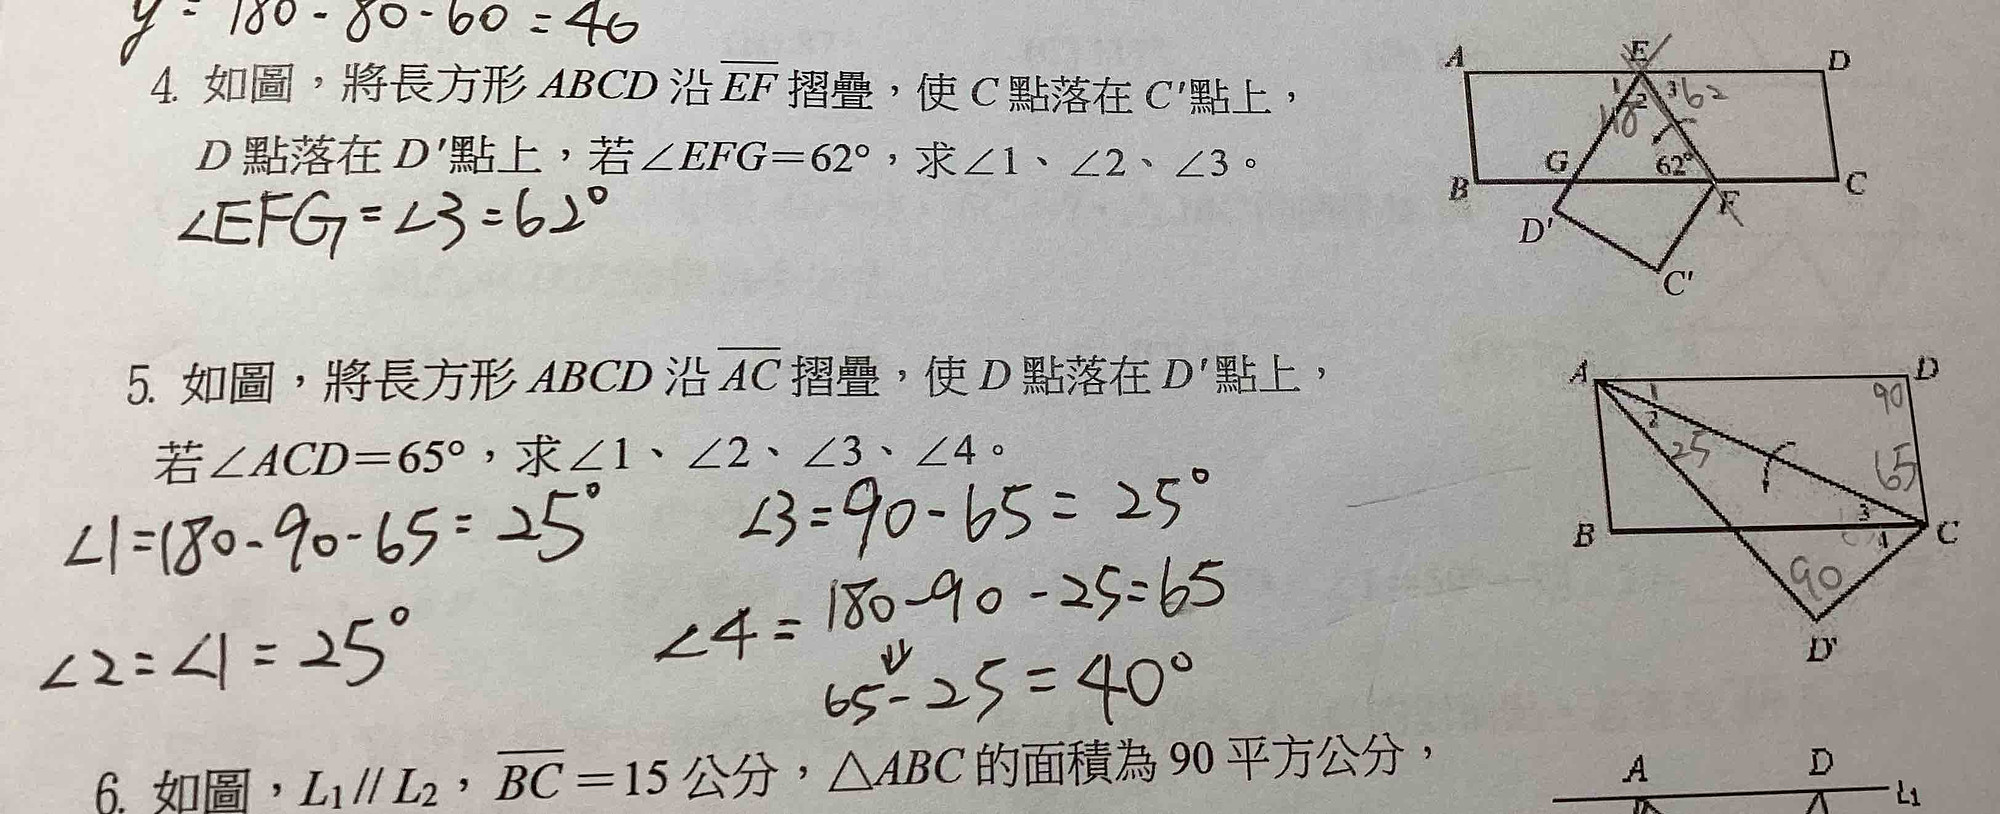 y = 180 - 80 - 60 = 40
4. 如圖，將長方形 ABCD 沿 EF 摺疊，使 C 點落在 C'點上，
D 點落在 D'點上，若∠EFG=62°，求∠1、∠2、∠3。
∠EFG = ∠3 = 62°
A E D
1 2 3 62
G 62°
B F C
D'
C'
5. 如圖，將長方形 ABCD 沿 AC 摺疊，使 D 點落在 D'點上，
若∠ACD=65°，求∠1、∠2、∠3、∠4。
∠1=180-90-65= 25°
∠3=90-65= 25°
∠2=∠1=25°
∠4= 180-90-25=65
65-25=40°
A D
1 90
2
25 65
3
B 4 C
90
D'
6. 如圖，L1// L2，BC=15 公分，△ABC 的面積為 90 平方公分，
A D
L1